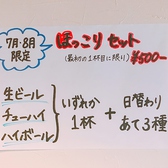 7月・8月
限定
ほっこり セット
(最初の1杯目に限り) ¥500-
生ビール
チューハイ
ハイボール
いずれか
1杯
+
日替わり
あて3種